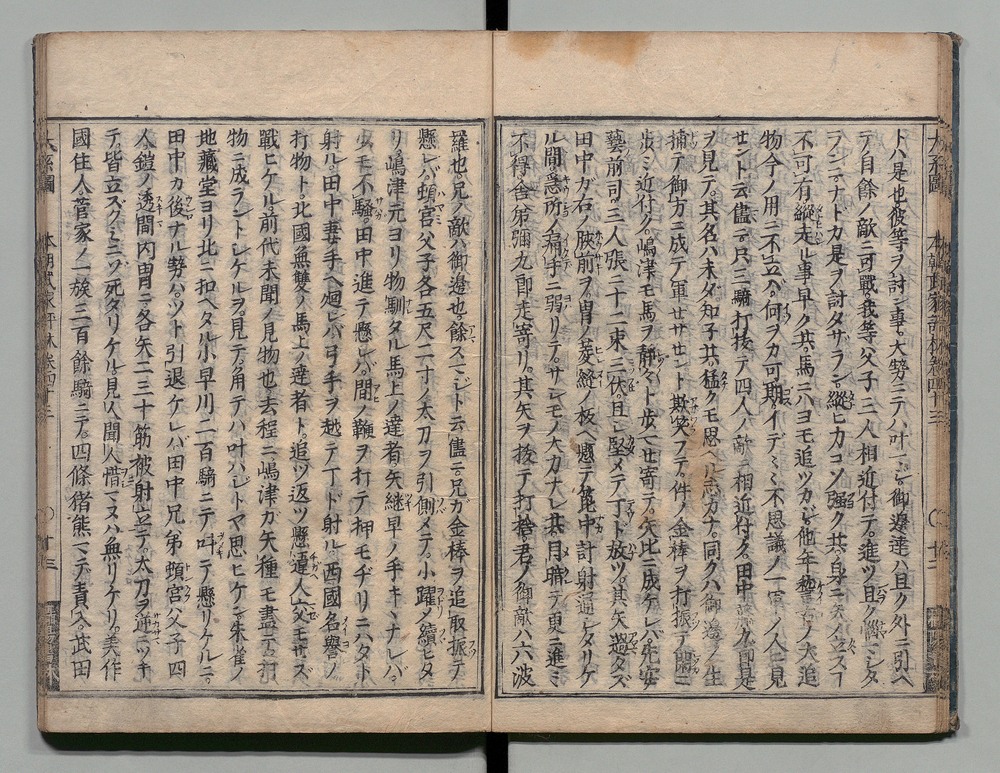 トハ是也彼等ヲ討ン事ハ大勢ニテハ叶マジ御邊達ハ且ク外ニ引ヘ
テ自餘ノ敵ニ可戰我等父子三人相近付テ進ツ退ツ且ク惱マシタ
ランニナドカ是ヲ討タザラン縱ヒカコソ強ク共身ニ矢ノ立ヌコ
不可有縱走ル事早ク共馬ニハヨモ追ツカジ他年稽古ノ犬追
物今ノ用ニ不立ハ何ヲカ可期イデヽヽ不思議ノ一軍ノ人ニ見
セント云儘ニ只三騎打拔テ四人ノ敵ニ相近付ク田中藤九郎是
ヲ見テ其名ハ未ダ知子共猛クモ思ヘル志カナ同クハ御邊ヲ生
捕テ御方ニ成テ軍セサセント欺笑フテ件ノ金棒ヲ打振テ閑ニ
歩ミ近付ク嶋津モ馬ヲ靜々ト歩マセ寄テ矢比ニ成ケレバ先安
藝前司三人張ニ十二束三伏且シ堅メテ丁ト放ツ其矢過タズ
田中ガ右ノ脥前ヲ冑ノ菱縫ノ板ヘ懸テ箆中計射通シタリケ
ル間急所ノ痛手ニ弱リテサシモノ大力ナレ共目暗テ更ニ進ミ
不得舎弟彌九郎走寄リ其矢ヲ拔テ打捨君ノ御敵ハ六波
羅也兄ノ敵ハ御邊也餘スマジト云儘ニ兄ガ金棒ヲ追取振テ
懸レバ頓宮父子各五尺二寸ノ太刀ヲ引側メテ小躍ノ續ヒタ
リ嶋津元ヨリ物馴タル馬上ノ達者矢継早ノ手キヽナレバ
少モ不騷田中進テ懸レバ間ノ鞭ヲ打テ押モヂリニハタト
射ル田中妻手ヘ廻レバ弓手ヲ越テ丁ド射ル西國名譽ノ
打物ト北國無雙ノ馬上ノ達者ト追ツ返ツ懸違人交モセズ
戰ヒケル前代未聞ノ見物也去程ニ嶋津ガ矢種モ盡テ打
物ニ成ラントシケルヲ見テ角テハ叶ハジトヤ思ヒケン朱雀ノ
地藏堂ヨリ北ニ扣ヘタル小早川二百騎ニテ呌テ懸リケルニ
田中カ後ナル勢ハツト引退ケレバ田中兄弟頓宮父子四
人鎧ノ透間内冑ニ各矢二三十筋被射立テ太刀ヲ逆ニツキ
テ皆立ズクミニゾ死タリケル見ル人聞人惜マヌハ無リケリ美作
國住人菅家ノ一族三百餘騎ニテ四條猪熊マデ責入武田
本朝武家評林卷四十三
廿三
大系圖
本朝武家評林卷四十三
廿三